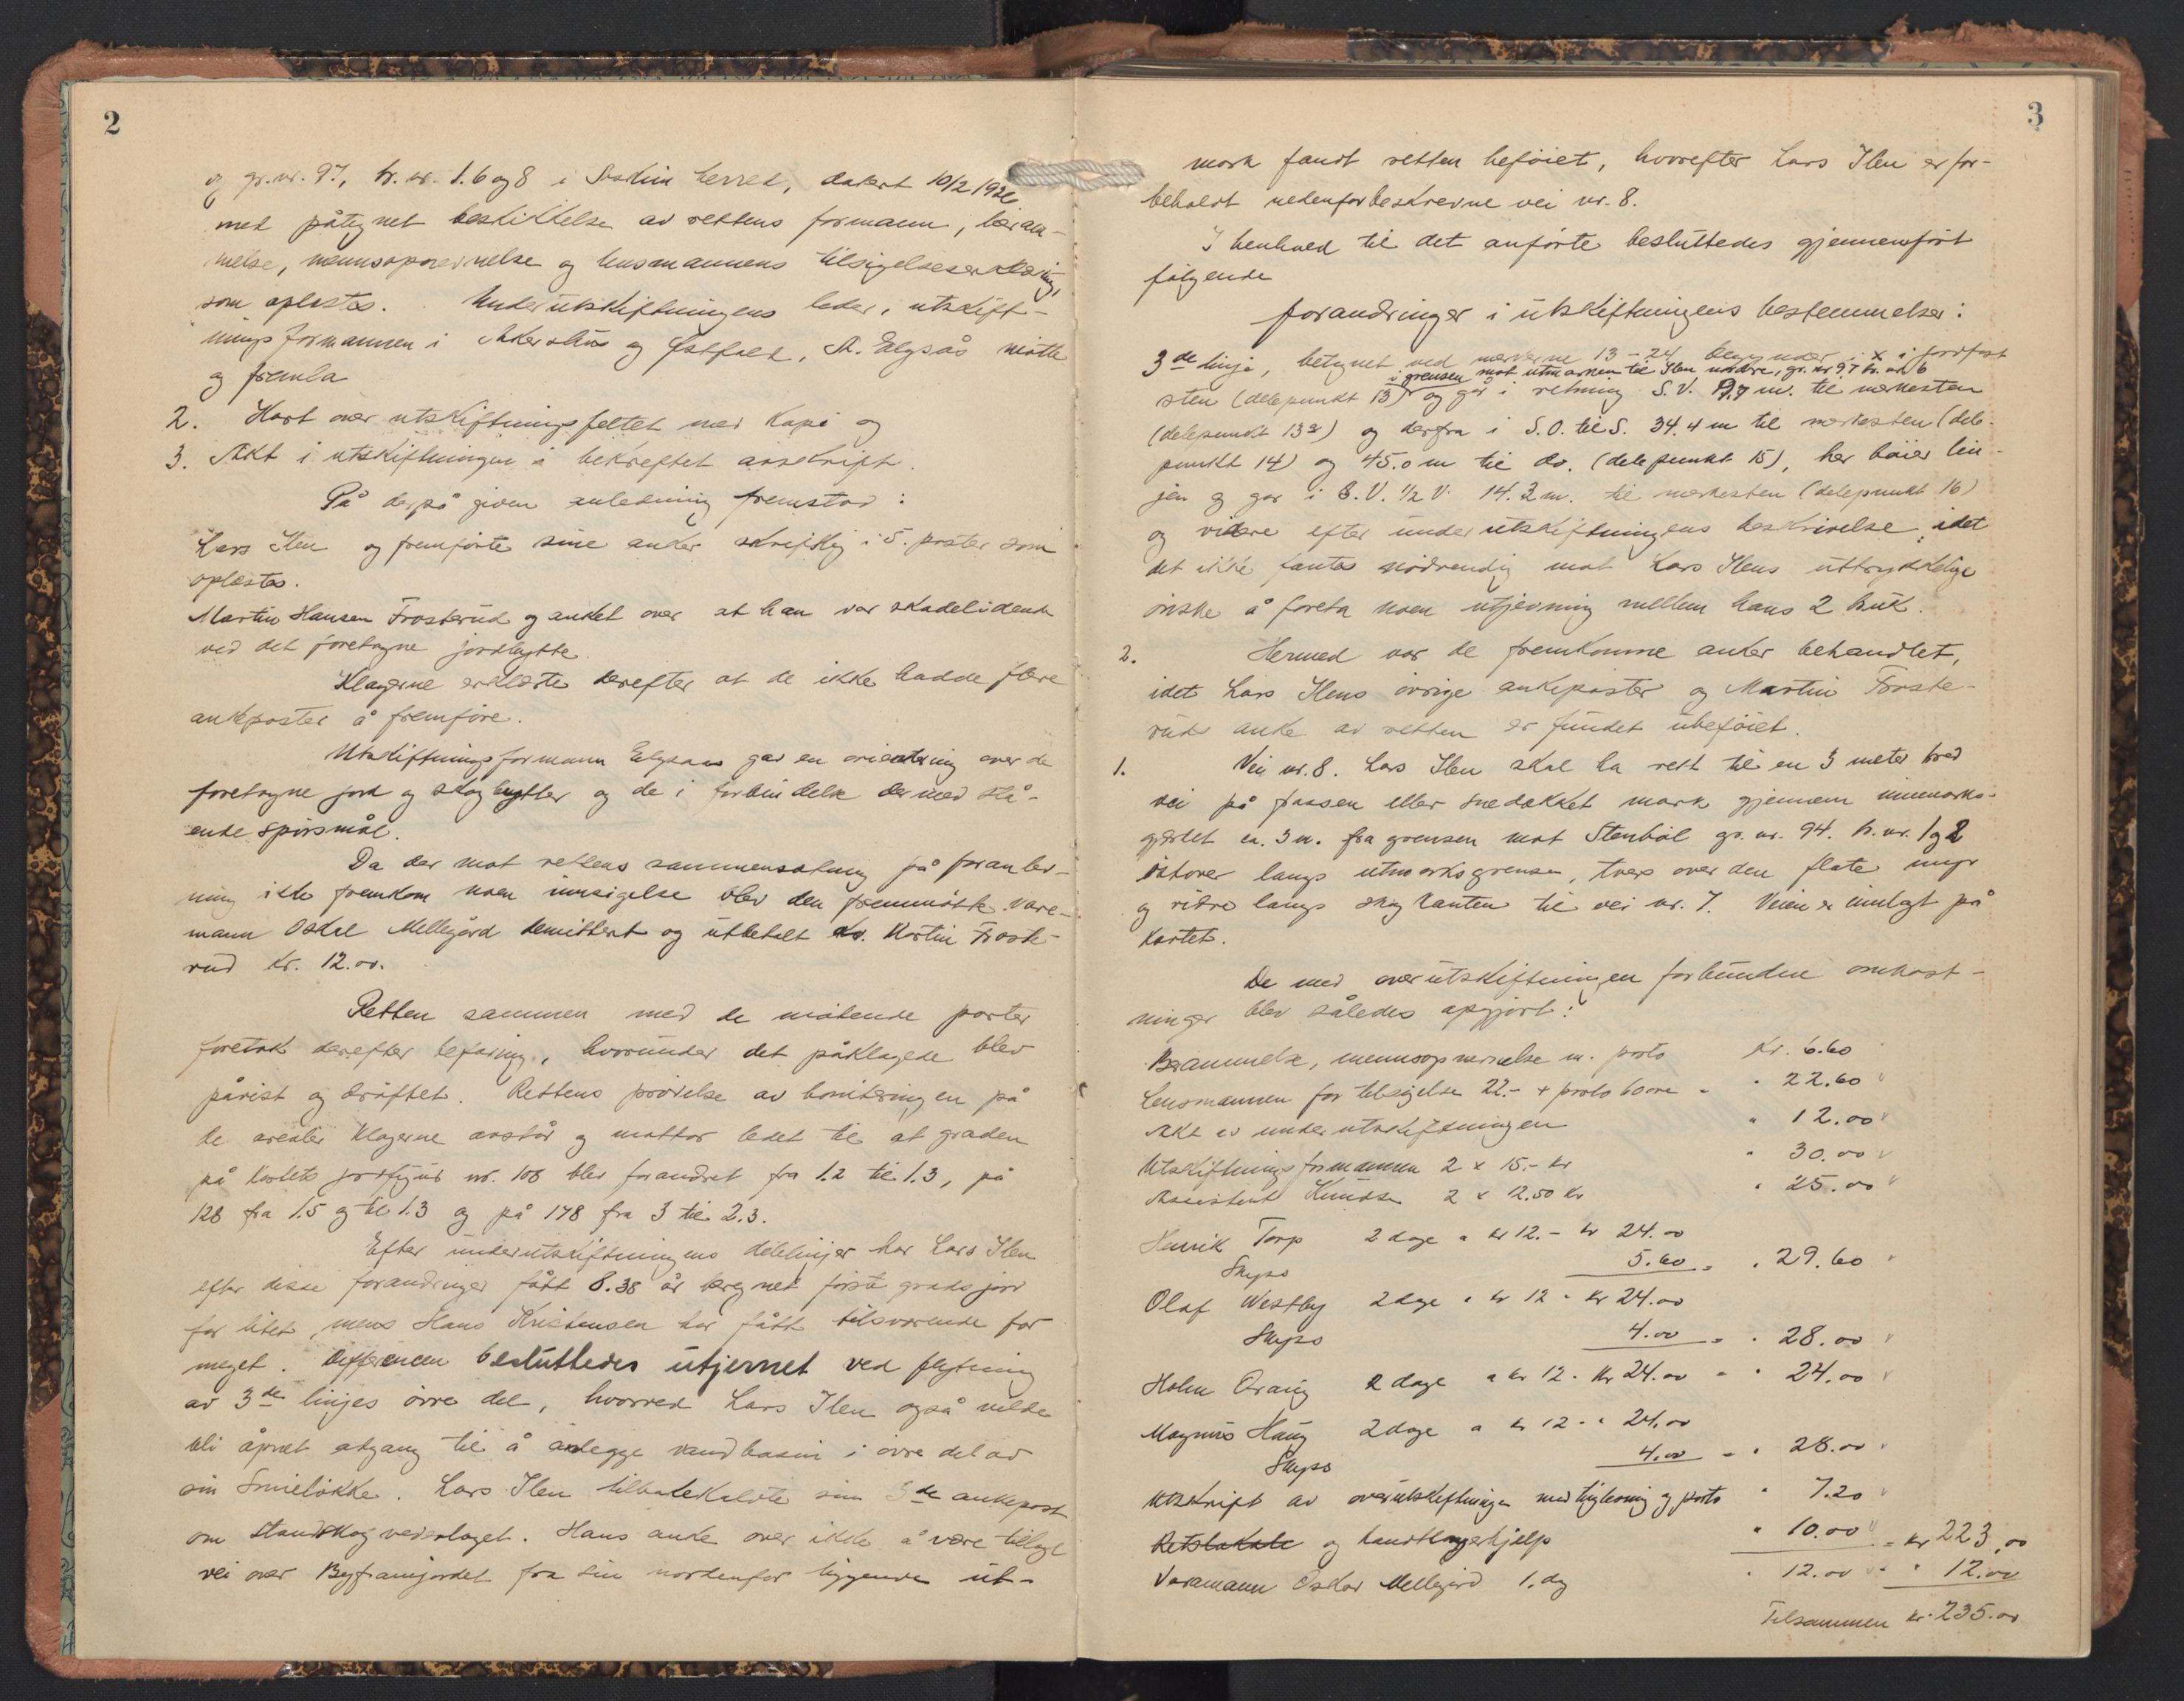 2
og gr.nr. 97, br.nr. 1. 6 og 8 i herred, datert 10/2 1926
med påtegnet beskikkelse av rettens formann, beram-
melse, mennsopnevnelse og lensmannens tilsigelseserklæring,
som oplestes. Underutskiftningens leder, utskift-
ningsformannen i Akershus og Østfold, A. Elgsås møtte
og fremla
2. Kart over utskiftningsfeltet med kopi og
3. Akt i utskiftningen i bekreftet avskrift.
På derpå given anledning fremstod:
Lars Ilen og fremførte sine anker skriftlig i 5. poster som
oplestes.
Martin Hansen Frosterud og anket over at han var skadelidende
ved det foretagne jordbytte.
Klagerne erklærte derefter at de ikke hadde flere
ankeposter å fremføre.
Utskiftningsformann Elgsaas gav en orientering over de
foretagne jord og skogbytter og de i forbindelse dermed stå-
ende spørsmål.
Da der mot rettens sammensætning på foranled-
ning ikke fremkom noen innsigelse blev den fremmøtte vare-
mann Oskar Mellegård demittert og utbetalt av Martin Froste-
rud kr. 12.00.
Retten sammen med de møtende parter
foretok derefter befaring, hvorunder det påklagede blev
påvist og drøftet. Rettens prøvelse av boniteringen på
de arealer klagerne avstår og mottar ledet til at graden
på kartets jordfigur nr. 108 blev forandret fra 1.2 til 1.3, på
128 fra 1.5 og til 1.3 og på 178 fra 3 til 2.3.
Efter underutskiftningens delelinjer har Lars Ilen
efter disse forandringer fått 8.38 ar beregnet første grads jord
for litet, mens Hans Kristensen har fått tilsvarende for
meget. Differencen besluttedes utjevnet ved flytning
av 3de linjes øvre del, hvorved Lars Ilen også vilde
bli åpnet adgang til å anlegge vandbasin i øvre del av
sin Smieløkke. Lars Ilen tilbakekaldte sin 3de ankepost
om standskogvederlaget. Hans anke over ikke å være tillagt
vei over Byframjordet fra sin nordenfor liggende ut-
3
mark fandt retten beføiet, hvorefter Lars Ilen er for-
beholdt nedenforbeskrevne vei nr. 8.
I henhold til det anførte besluttedes gjennemført
følgende
forandringer i utskiftningens bestemmelser:
3de linje, betegnet ved merkerne 13-24 begynder x i jordfast
i grensen mot utmarken til Ilen nordre, gr. nr 97 br. nr 6
sten (delepunkt 13) og går i retning S.V. 19.7 m. til merkesten
(delepunkt 13a) og derfra i S.O. til S. 34.4 m til merkesten (dele-
punkt 14) og 45.0 m til do. (delepunkt 15), her bøier lin-
jen og går i S.V. 1/2 V. 14.2 m. til merkesten (delepunkt 16)
og videre efter underutskiftningens beskrivelse, idet
det ikke fantes nødvendig mot Lars Ilens uttrykkelige
ønske å foreta noen utjevning mellem hans 2 bruk.
2. Hermed var de fremkomne anker behandlet,
idet Lars Ilens øvrige ankeposter og Martin Froste-
rud anke av retten er fundet ubeføiet.
1. Vei nr. 8. Lars Ilen skal ha rett til en 3 meter bred
vei på frossen eller snedækket mark gjennem innmarks-
gjerdet ca. 3 m. fra grensen mot Stenbøl gr. nr. 94. br. nr. 1 og 2
østover langs utmarksgrensen, tvers over den flate myr
og videre langs skogkanten til vei nr. 7. Veien er innlagt på
kartet.
De med overutskiftningen forbundne omkost-
ninger blev således opgjort:
Berammelse, mennsopnevnelse m. porto kr. 6.60
Lensmannen for tilsigelse 22.- + porto 60 øre - " 22.60
Akt av underutskiftningen " 12.00
Utskiftningsformannen 2 x 15.- kr " 30.00
Assistent Knudsen 2 x 12.50 kr " 25.00
Henrik Torp 2 dage a kr 12.- kr 24.00
Skyss 5.60 = " 29.60
Olaf Westby 2 dage a kr 12 - kr 24.00
Skyss 4.00 = " 28.00
Holm 2 dage a kr 12. kr 24.00 = " 24.00
Magnus Haug 2 dage a kr 12 - " 24.00
Skyss 4.00 = " 28.00
Utskrift av overutskiftningen med tinglesning og porto " 7.20
Retslokale og handtlangerhjelp " 10.00 = kr 223.00
Varamann Oskar Mellegård 1. dag " 12.00 = " 12.00
Tilsammen kr. 235.00